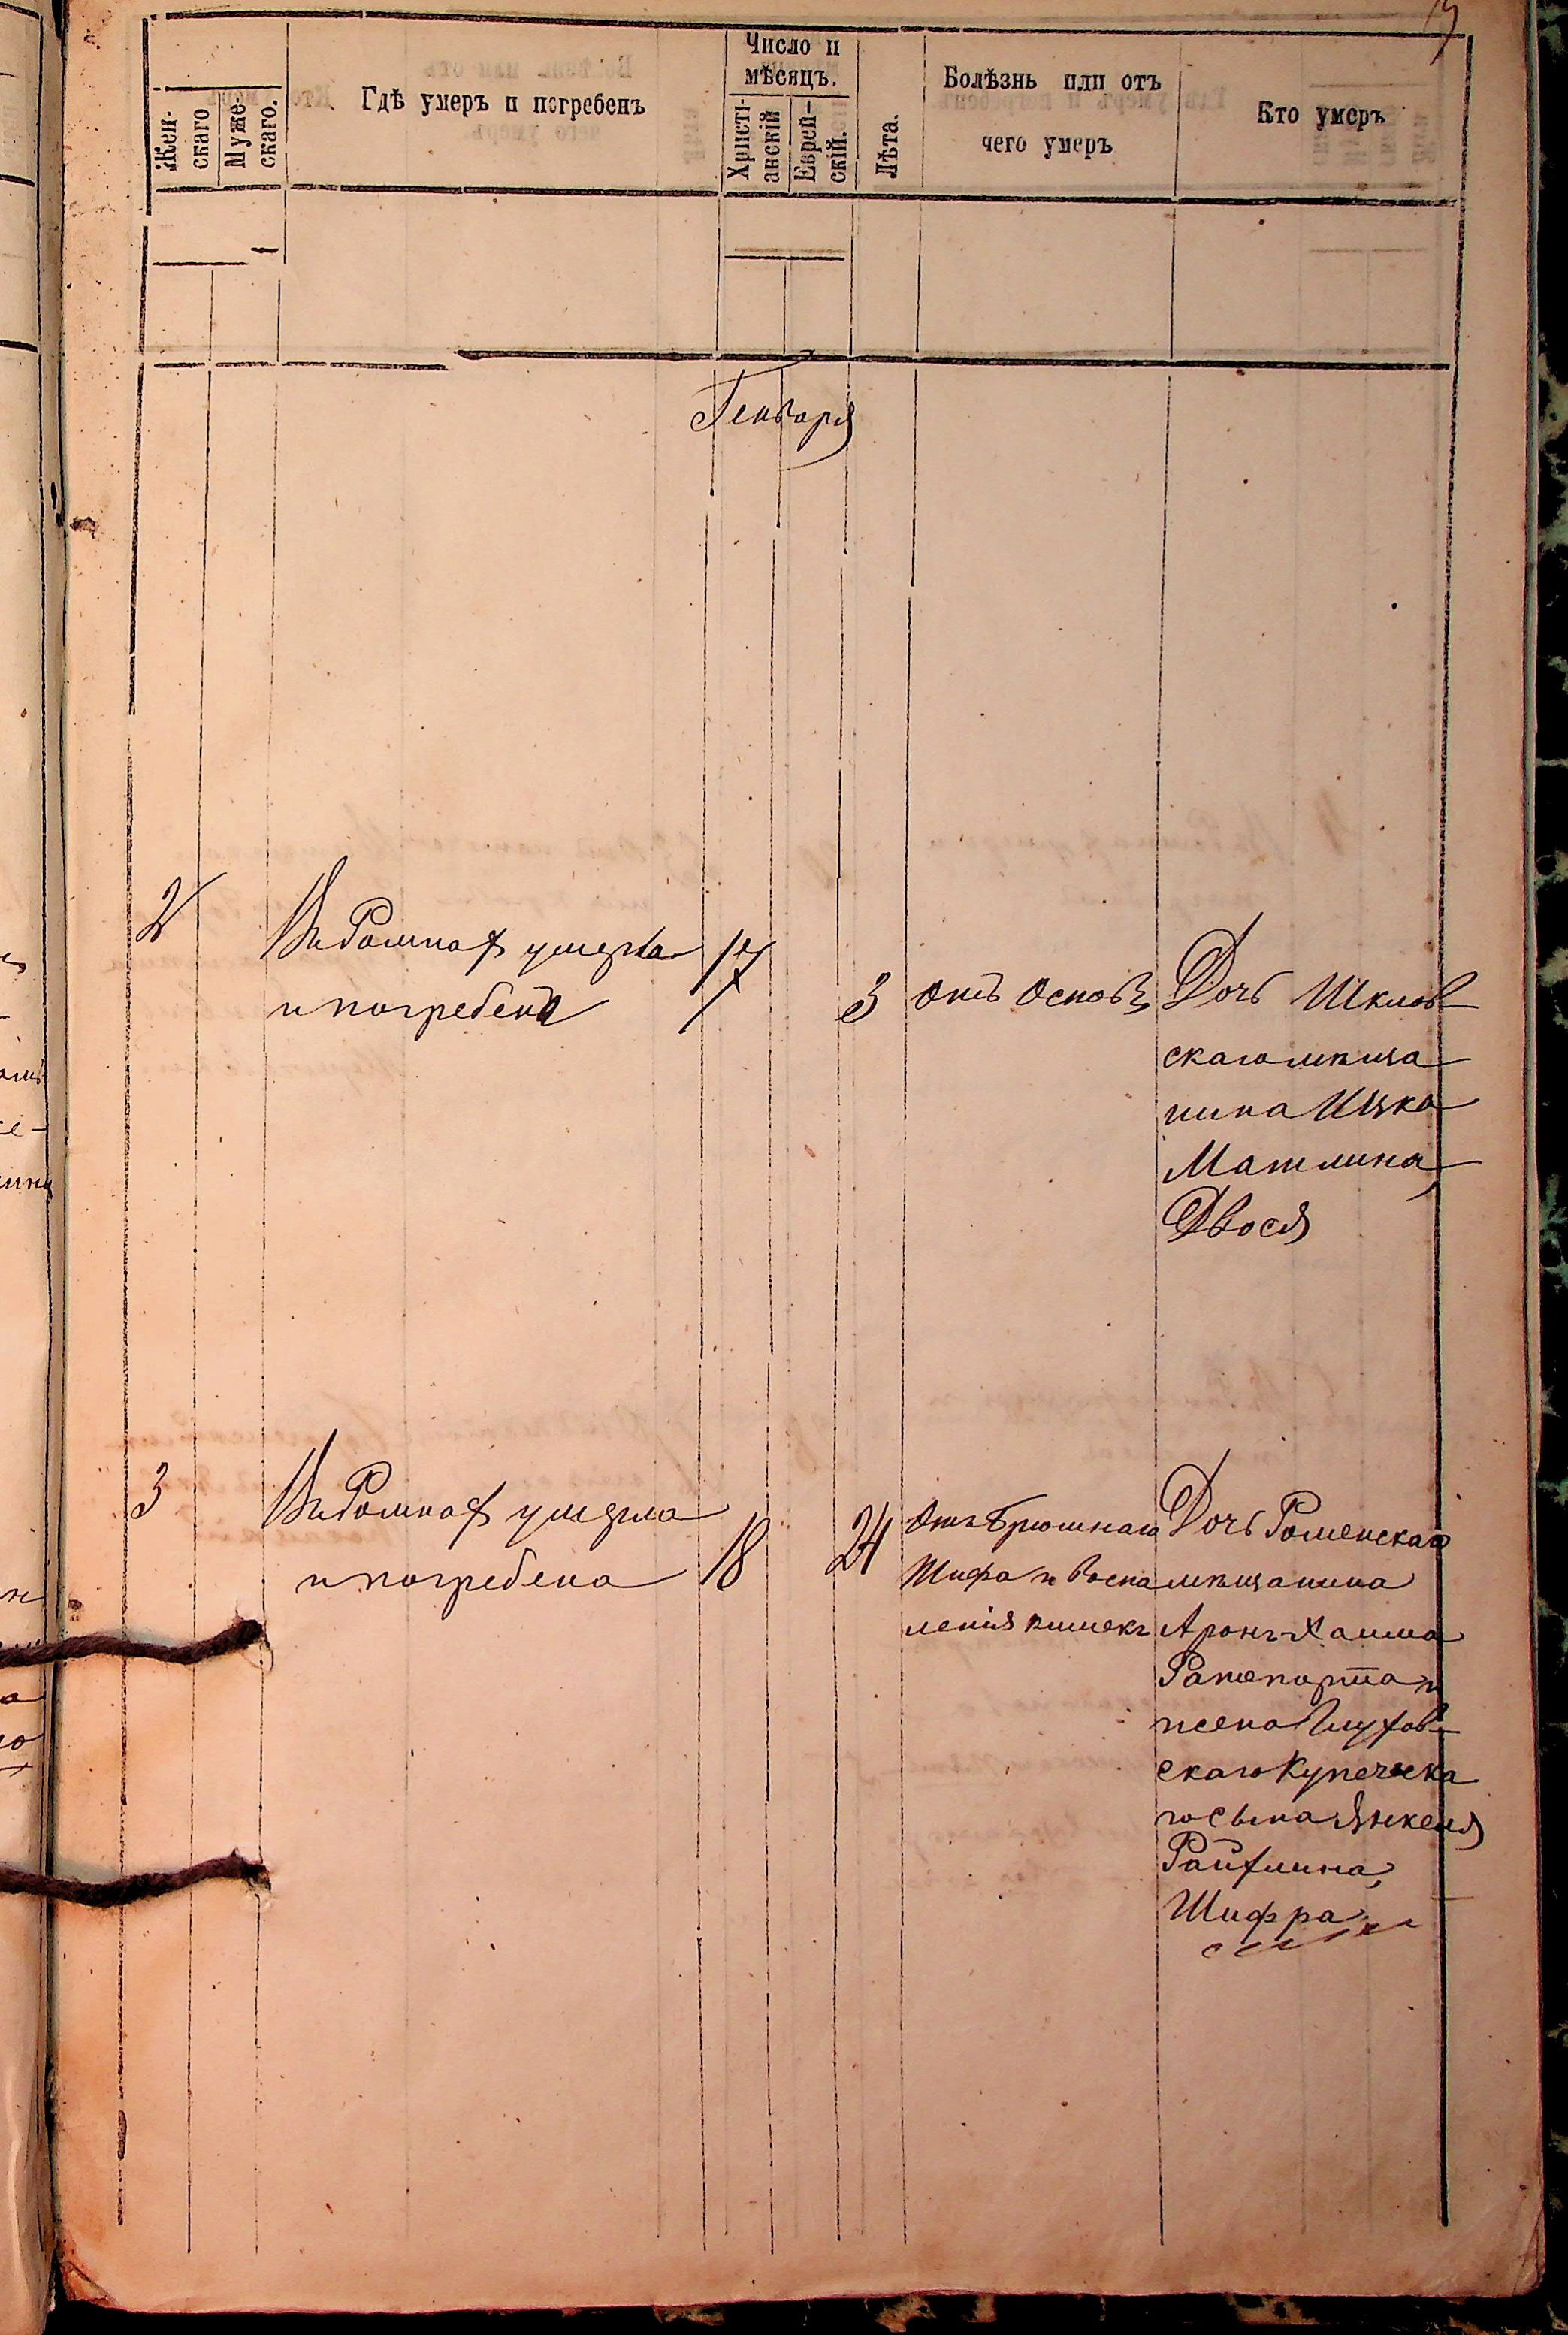 Жен-
скаго
Муже-
скаго.
Гдѣ умеръ и погребенъ
Число и
мѣсяцъ.
Христі-
анскій
Еврей-
скій.
Лѣта.
Болѣзнь или отъ
чего умеръ
Кто умеръ
Генваря
2
Въ Ромнахъ умерла
и погребена
17
3
Отъ Оспы
Дочь Шклов
скаго мѣща
нина Ицка
Матлина,
Двося
3
Въ Ромнахъ умерла
и погребена
18
24
Отъ Брюшнаго
Тифа и Воспа
ленія кишекъ
Дочь Роменскаго
мѣщанина
Аронъ-Хаима
Рапопорта и
жена Глухов-
скаго Купеческа
го сына Янкеля
Райхлина,
Шифра